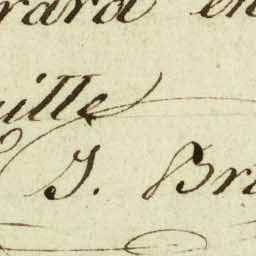 rard en
uille
J. Bri